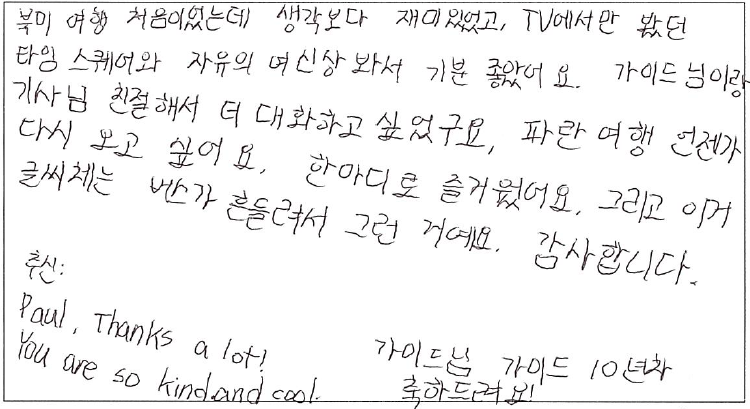 북미 여행 처음이었는데 생각보다 재미있었고, TV에서만 봤던
타임 스퀘어와 자유의 여신상 봐서 기분 좋았어요. 가이드님이랑
기사님 친절해서 더 대화하고 싶었구요, 파란여행 언젠가
다시 오고 싶어요. 한마디로 즐거웠어요. 그리고 이거
글씨체는 버스가 흔들려서 그런 거예요. 감사합니다.
추신:
Paul, Thanks a lot!
You are so kind and cool.
가이드님 가이드 10년차
축하드려요!